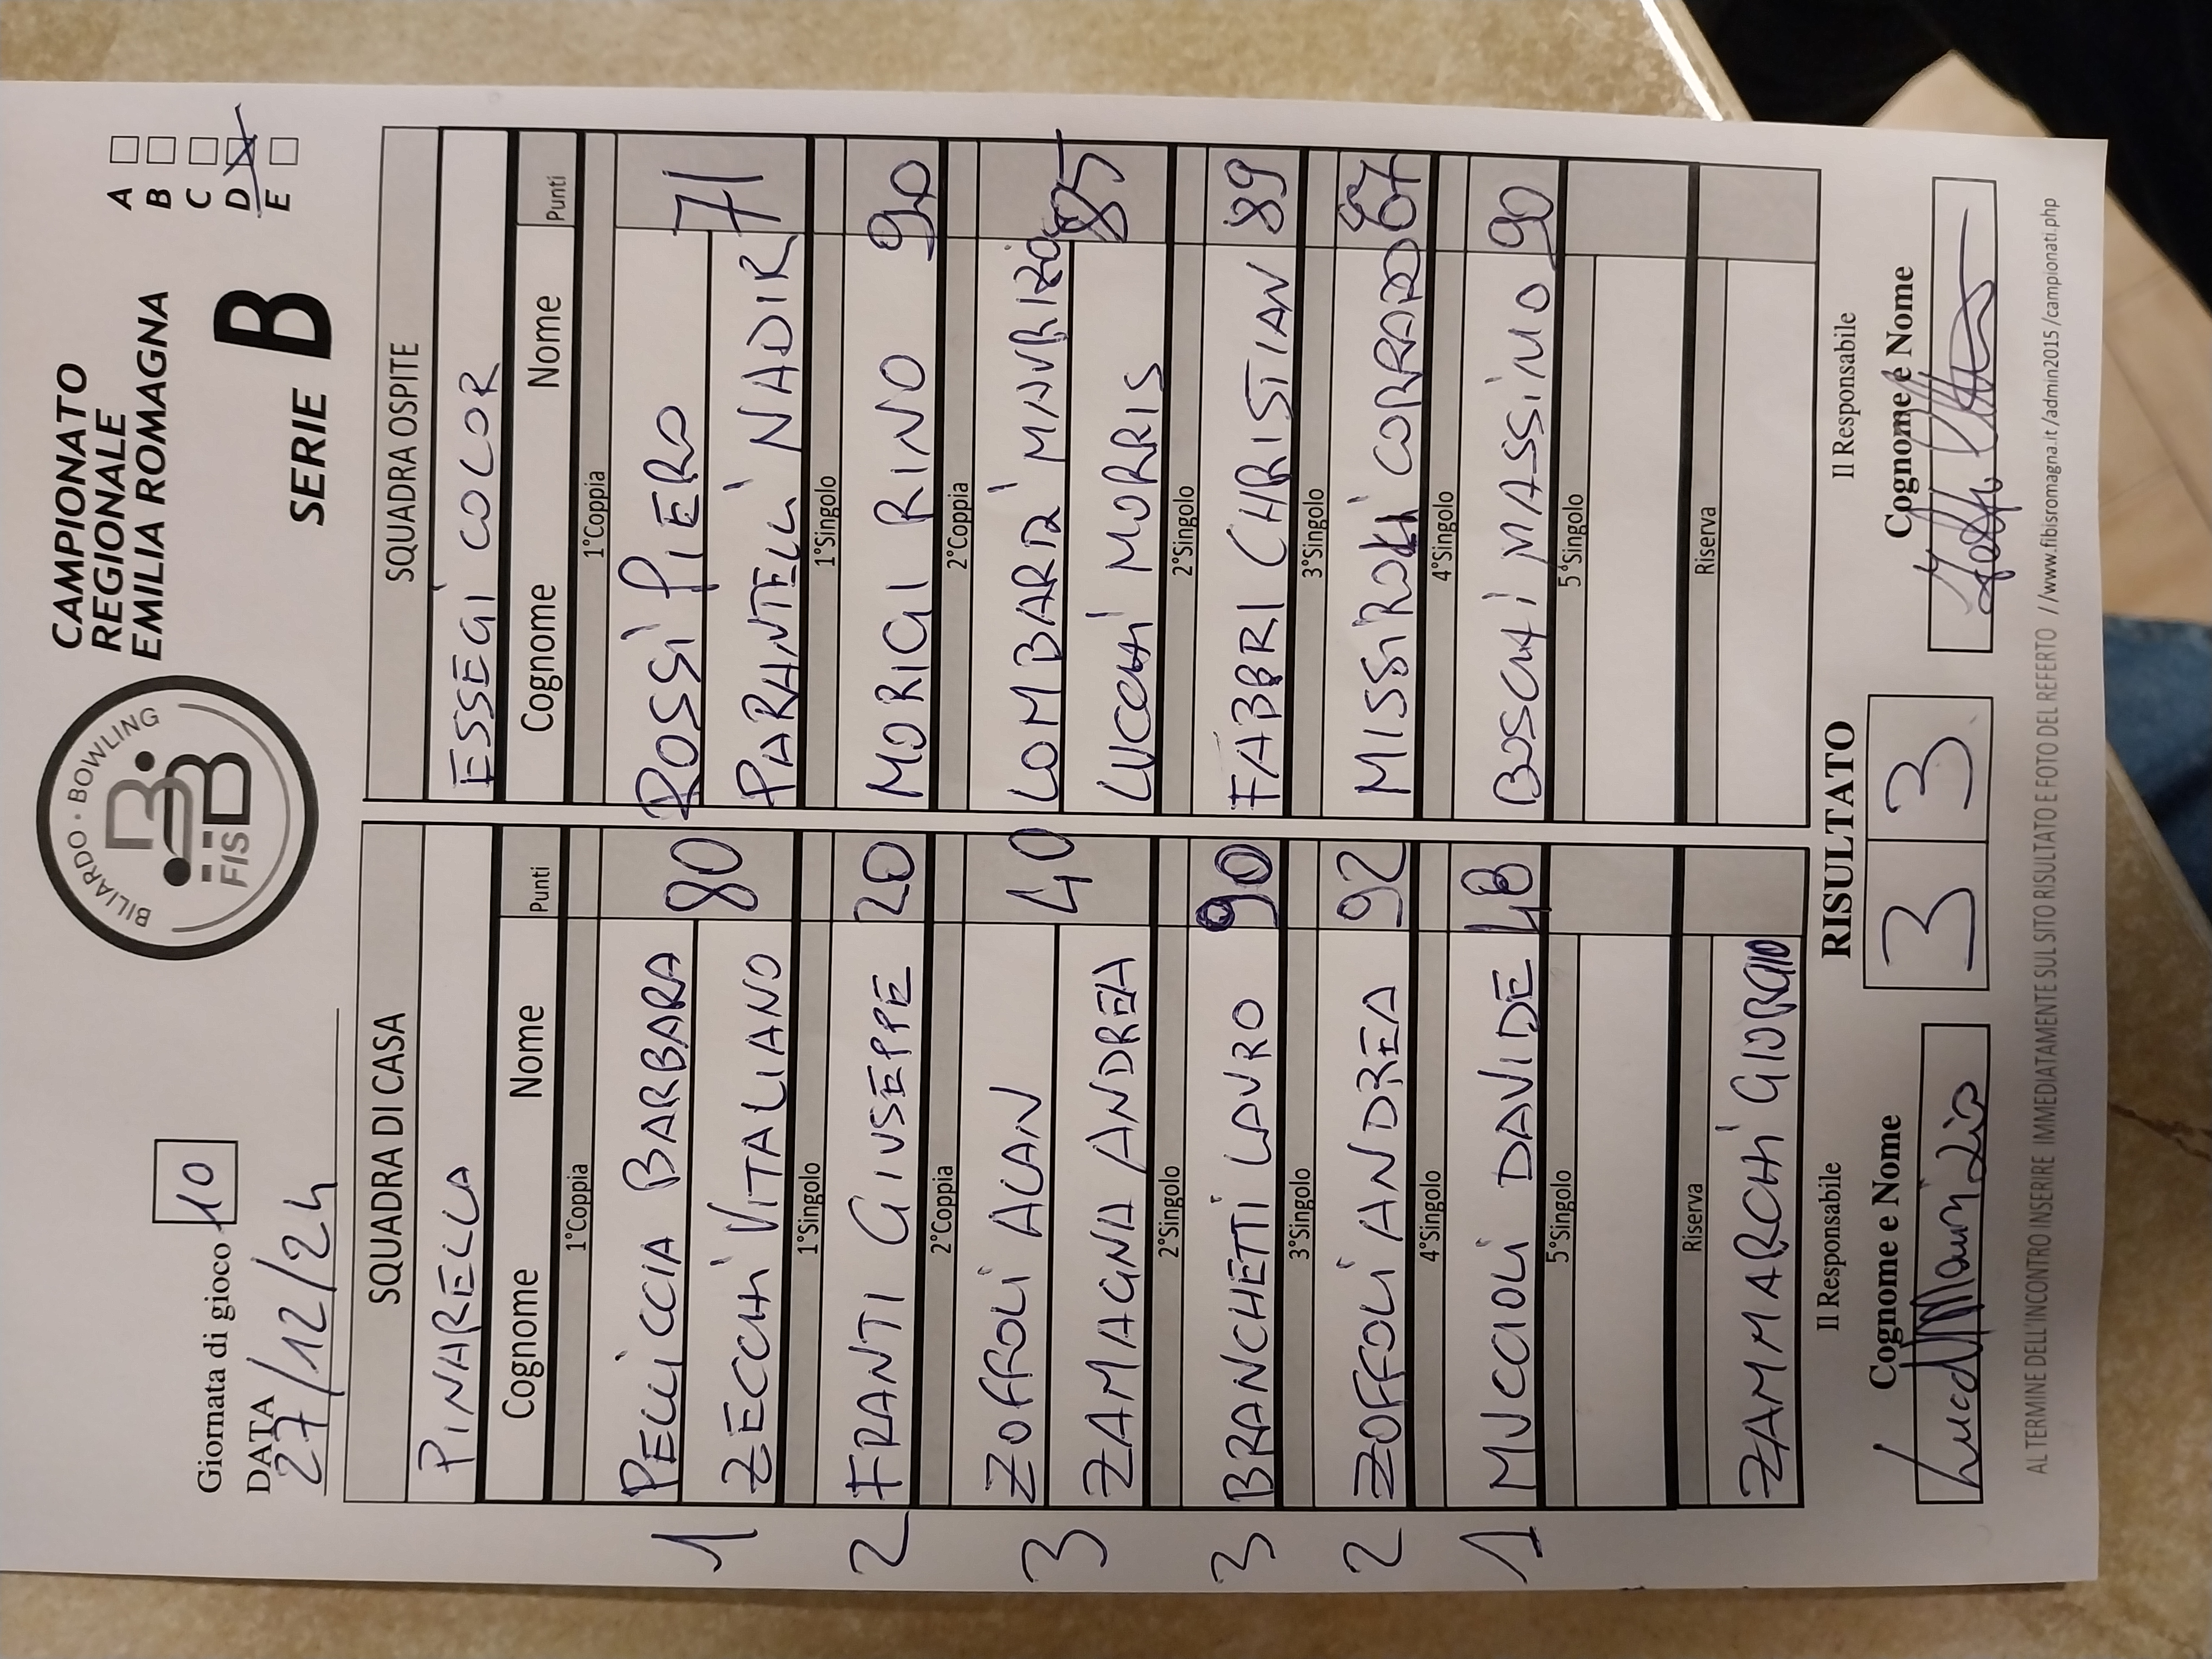 Giornata di gioco 10
DATA
27/12/24
BILIARDO · BOWLING
FISBB
CAMPIONATO
REGIONALE
EMILIA ROMAGNA
SERIE B
A
B
C
D
E
SQUADRA DI CASA
PINARELLA
Cognome Nome Punti
1°Coppia
1 PELLICCIA BARBARA
ZECCHI VITALIANO 80
1°Singolo
2 FRANTI GIUSEPPE 20
2°Coppia
3 ZOFFOLI ALAN
ZAMAGNA ANDREA 40
2°Singolo
3 BRANCHETTI LAURO 90
3°Singolo
2 ZOFFOLI ANDREA 92
4°Singolo
1 MUCCIOLI DAVIDE 48
5°Singolo
Riserva
ZAMMARCHI GIORGIO
SQUADRA OSPITE
ESSEGI COLOR
Cognome Nome Punti
1°Coppia
ROSSI PIERO
PARANTELLI NADIR 71
1°Singolo
MORIGI RINO 90
2°Coppia
LOMBARDI MAURIZIO
LUCCHI MORRIS 85
2°Singolo
FABBRI CHRISTIAN 89
3°Singolo
MISSIROLI CORRADO 67
4°Singolo
BOSCHI MASSIMO 90
5°Singolo
Riserva
Il Responsabile
Cognome e Nome
RISULTATO
3 3
Il Responsabile
Cognome e Nome
AL TERMINE DELL'INCONTRO INSERIRE IMMEDIATAMENTE SUL SITO RISULTATO E FOTO DEL REFERTO //www.fibisromagna.it/admin2015/campionati.php